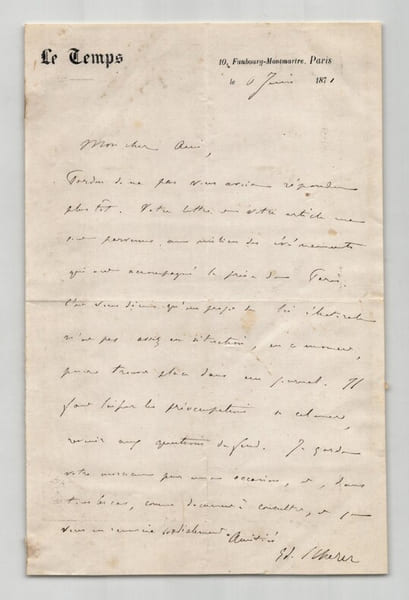 Le Temps
10, Faubourg-Montmartre, Paris
le 6 Juin 1871
Mon cher Ami,
Pardon de ne pas vous avoir répondu
plus tôt. Votre lettre et votre article me
sont parvenus au milieu des événements
qui ont accompagné la prise de Paris.
vous dirais qu'un projet de loi électorale
n'est pas assez en situation, en ce moment,
pour trouver place dans un journal. Il
faut laisser les préoccupations se calmer,
revenir aux questions de fond. Je garde
votre morceau pour une occasion, et, dans
tous les cas, comme document à consulter, et je
vous en remercie cordialement.
Ed. Scherer